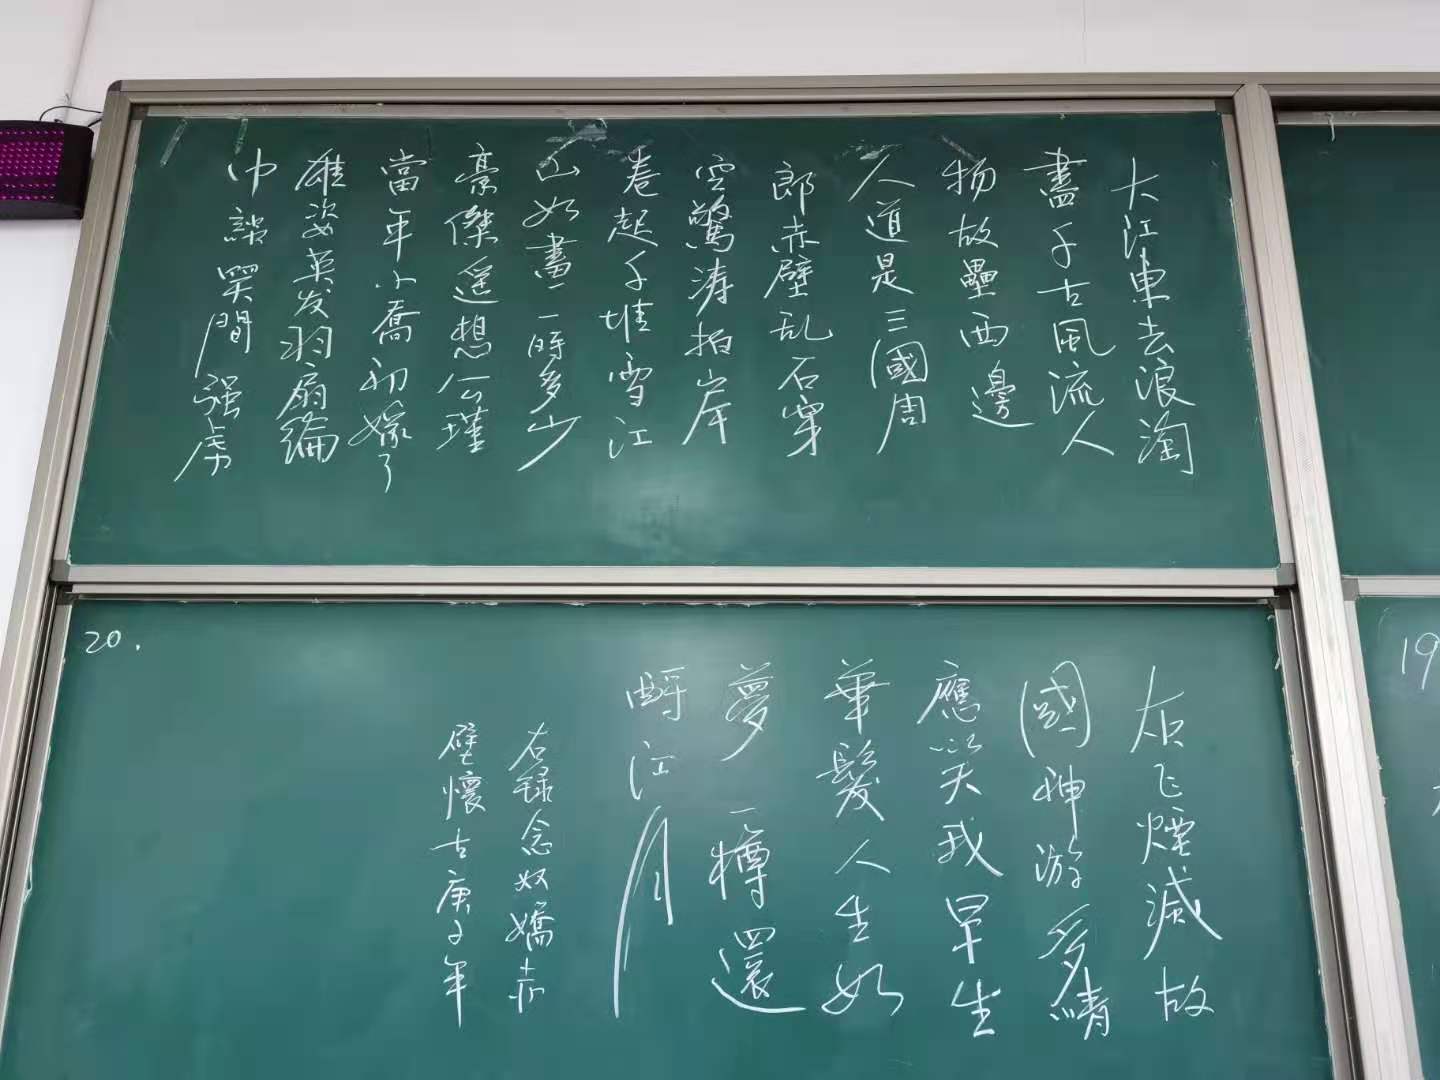 大江東去浪淘
盡千古風流人
物故壘西邊
人道是三國周
郎赤壁乱石穿
空驚涛拍岸
卷起千堆雪江
山如畫一時多少
豪傑遥想公瑾
當年小喬初嫁了
雄姿英发羽扇綸
巾談笑間强虏
灰飞煙滅故
國神游多情
應笑我早生
華髮人生如
夢一樽還
酹江月
右録念奴嬌赤
壁懷古庚子年
20.
19